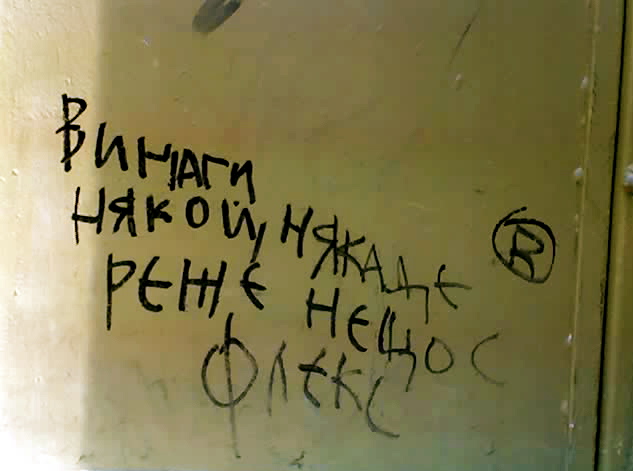 ВИНАГИ
НЯКОЙ, НЯКАДЕ
РЕЖЕ НЕЩО С
ФЛЕКС
R